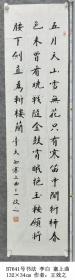 五月天山雪無花只有寒笛中聞折柳春
色未曾看曉戰隨金鼓宵眠抱玉鞍願將
腰下劍直為斬樓蘭
B7641号书法 李白 塞上曲
132×34cm 作者：王效之